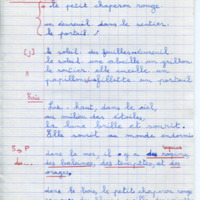 le petit chaperon rouge
un écureuil dans le sentier.
le portail !
[j] le soleil. des feuilles écureuil.
le soleil une abeille un grillon
le sentier. elle cueille un
papillon feuillette un portail
Là-haut, dans le ciel,
au milieu des étoiles,
la lune brille et sourit.
Elle sourit au monde endormi
requins
dans la mer, il y a des requins,
des baleines, des tempêtes, et des
orages.
dans le bois, le petit chaperon